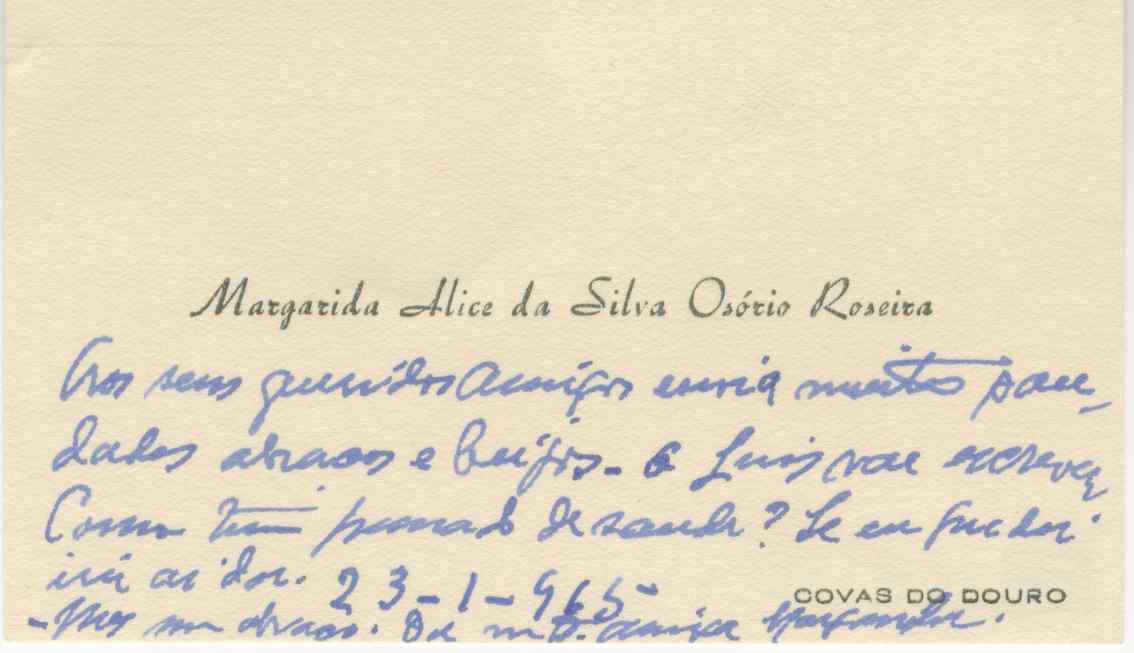 Margarida Alice da Silva Osório Roseira
Aos seus queridos Amigos envia muitas sau-
dades abraços e beijos - o Luis vae escrever
Como tem passado de saude? Se eu puder
irei ai
23-1-965
COVAS DO DOURO
- Mas um abraço. Da m.to amiga Margarida.